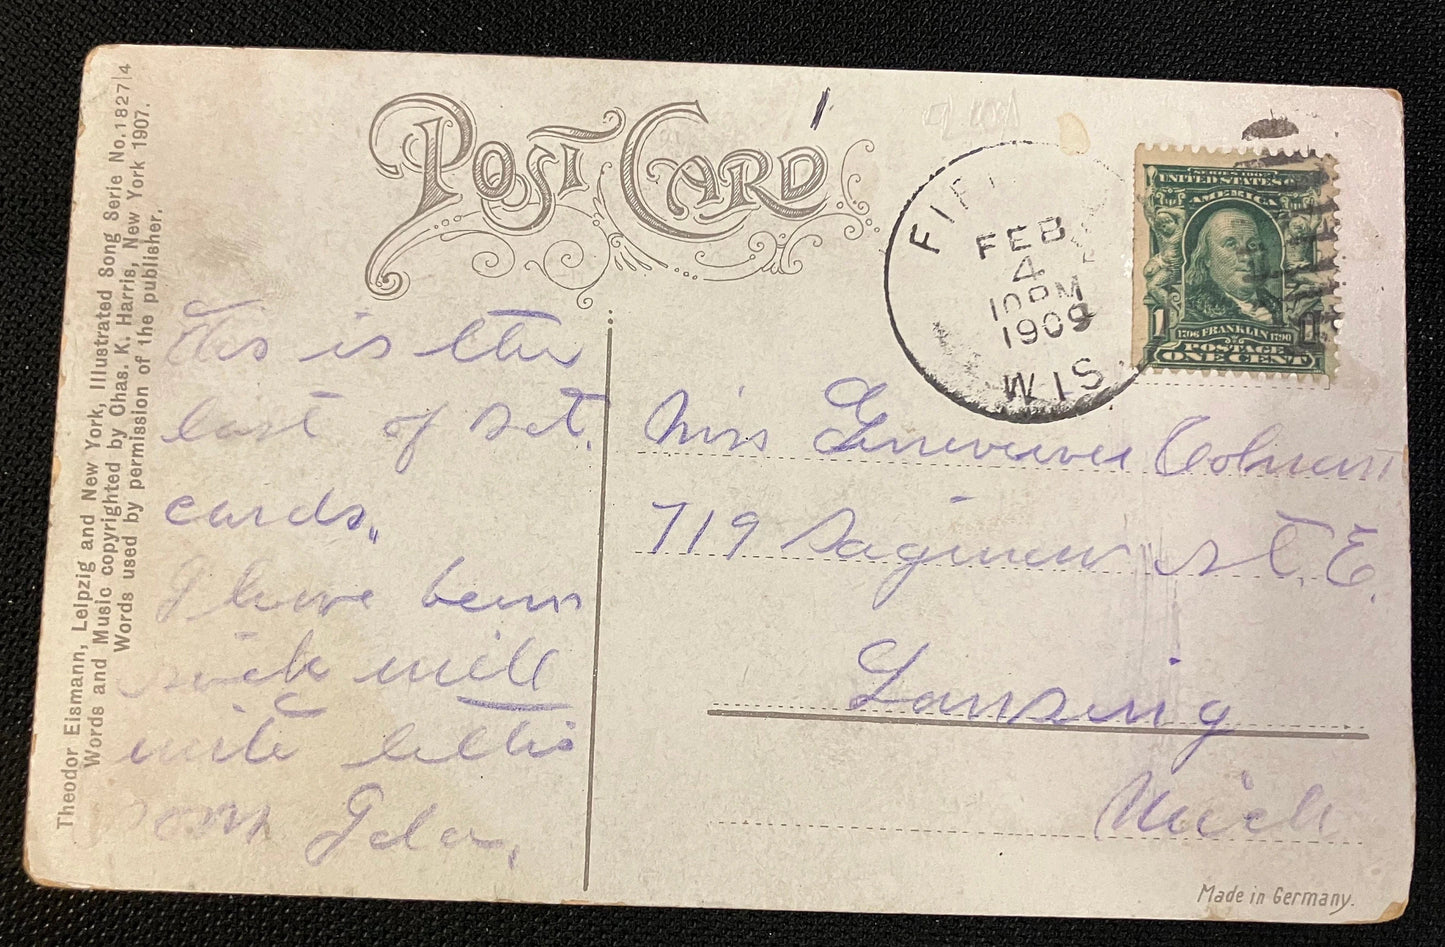 POST CARD
Theodor Eismann, Leipzig and New York, Illustrated Song Serie No. 1827|4
Words and Music copyrighted by Chas. K. Harris, New York 1907.
Words used by permission of the publisher.
FEB
4
10PM
1909
WIS
UNITED STATES OF
AMERICA
1706 FRANKLIN 1790
1
POSTAGE
ONE CENT
This is the
last of set.
cards.
I have been
sick will
write letter
soon Ida.
Miss Genevieve
719 Saginaw St. E.
Lansing
Mich
Made in Germany.